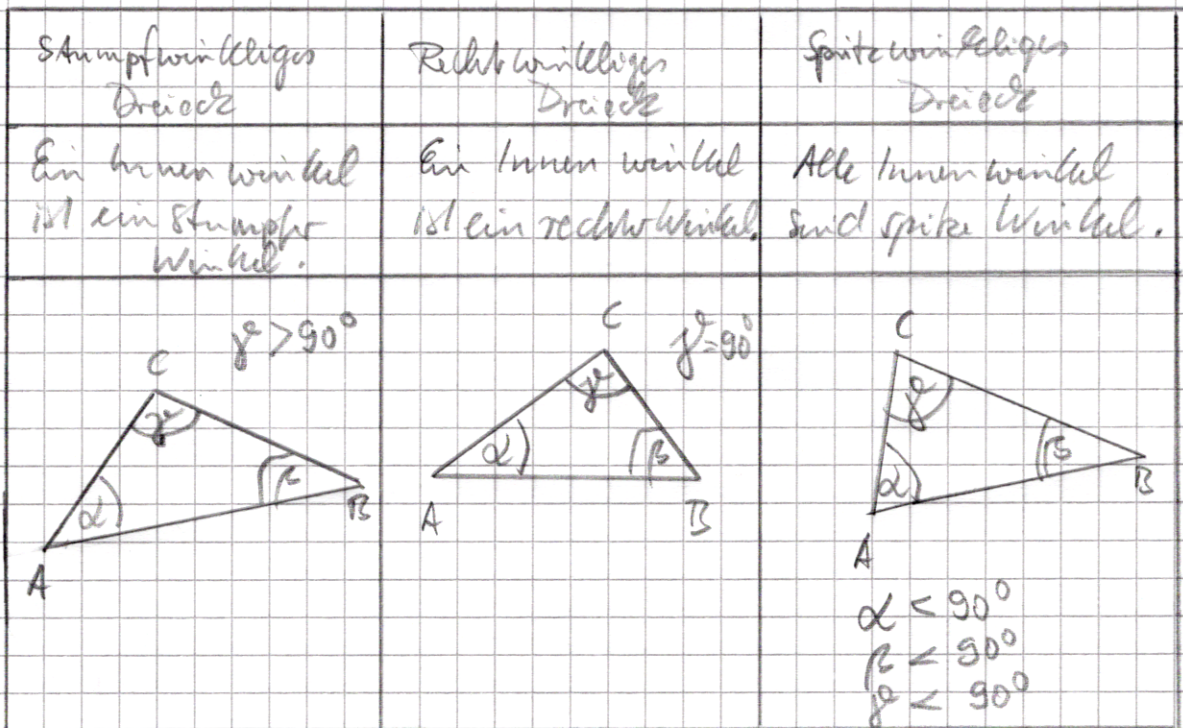 Stumpfwinkliges
Dreieck
Rechtwinkliges
Dreieck
Spitzwinkliges
Dreieck
Ein Innenwinkel
ist ein stumpfer
Winkel.
Ein Innenwinkel
ist ein rechter Winkel.
Alle Innenwinkel
sind spitze Winkel.
γ > 90°
C
γ
α
β
A
B
γ = 90°
C
γ
α
β
A
B
C
γ
α
β
A
B
α < 90°
β < 90°
γ < 90°